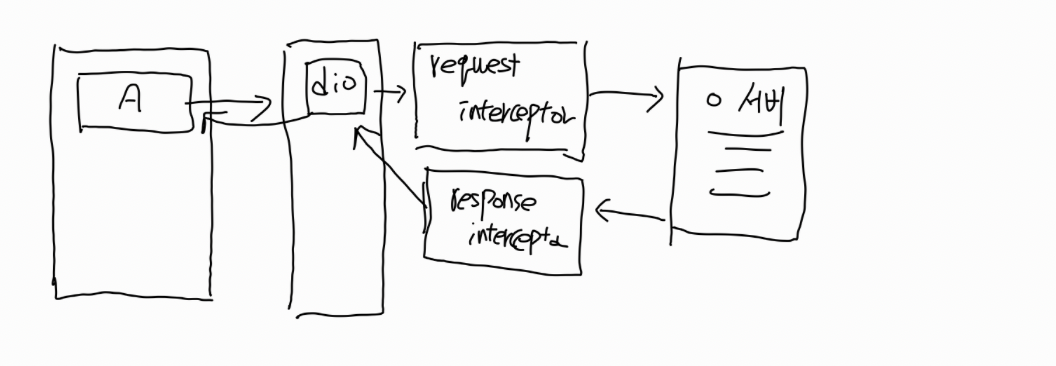 A
dio
request
interceptor
서버
response
intercepta